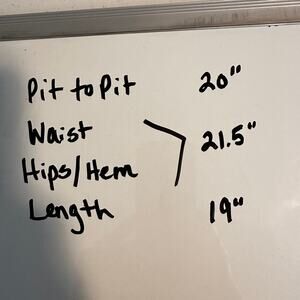 Pit to Pit 20"
Waist
21.5"
Hips/Hem
Length 19"